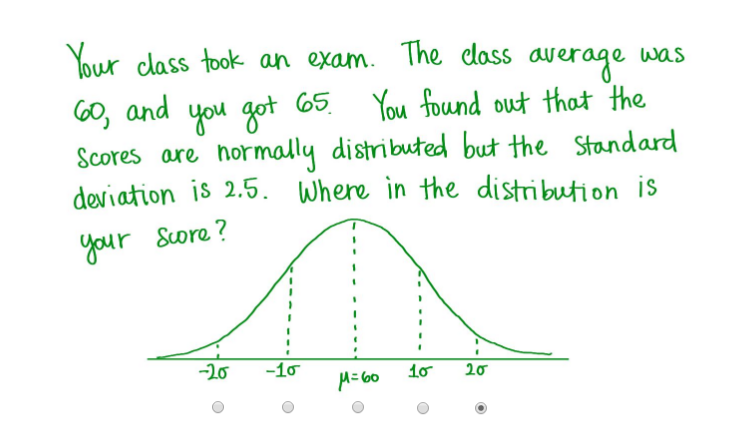 Your class took an exam. The class average was
60, and you got 65. You found out that the
Scores are normally distributed but the Standard
deviation is 2.5. Where in the distribution is
your Score?
-2σ -1σ μ=60 1σ 2σ